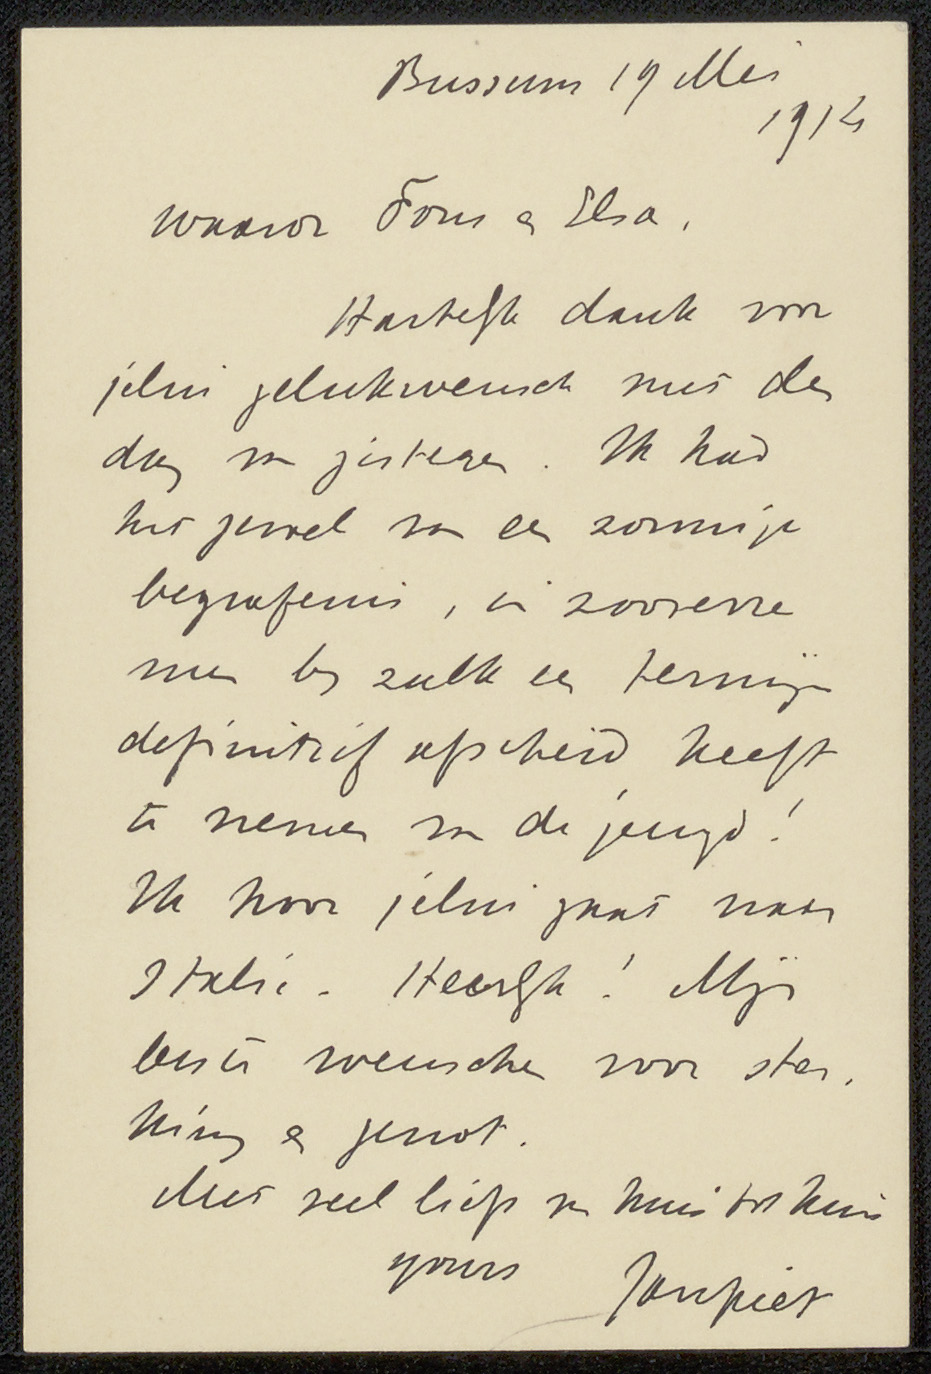 Bussum 19 Mei
1914
Waarde Fons en Elsa,
Hartelijk dank voor
jelui gelukwensch met den
dag van gisteren. Ik had
het gevoel van een zonnige
begrafenis, in zooverre
men bij zulk een termijn
definitief afscheid heeft
te nemen van de jeugd!
Ik hoor jelui gaat naar
Italië. Heerlijk! Mijn
beste wenschen voor ster-
king en genot.
Met veel liefs van huis tot huis
yours Janpiet